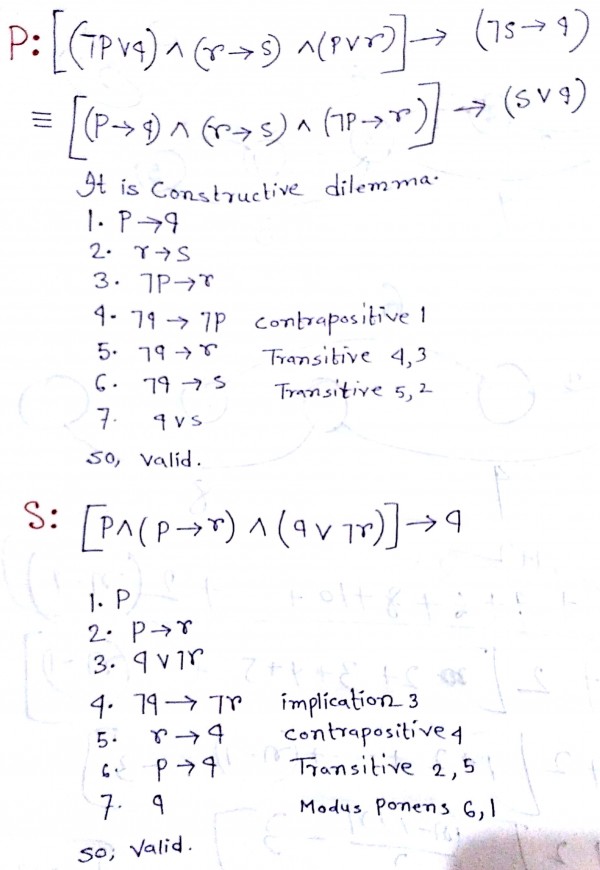 P: [(ㄱP∨q) ∧ (r→s) ∧(P∨r)] → (ㄱs→q)
≡ [(P→q) ∧ (r→s) ∧ (ㄱP→r)] → (s∨q)
It is Constructive dilemma.
1. P→q
2. r→s
3. ㄱP→r
4. ㄱq → ㄱP contrapositive 1
5. ㄱq → r Transitive 4,3
6. ㄱq → s Transitive 5,2
7. q∨s
so, valid.
S: [P∧(P→r) ∧ (q∨ㄱr)]→q
1. P
2. P→r
3. q∨ㄱr
4. ㄱq → ㄱr implication 3
5. r→q contrapositive 4
6. P→q Transitive 2,5
7. q Modus Ponens 6,1
so, valid.